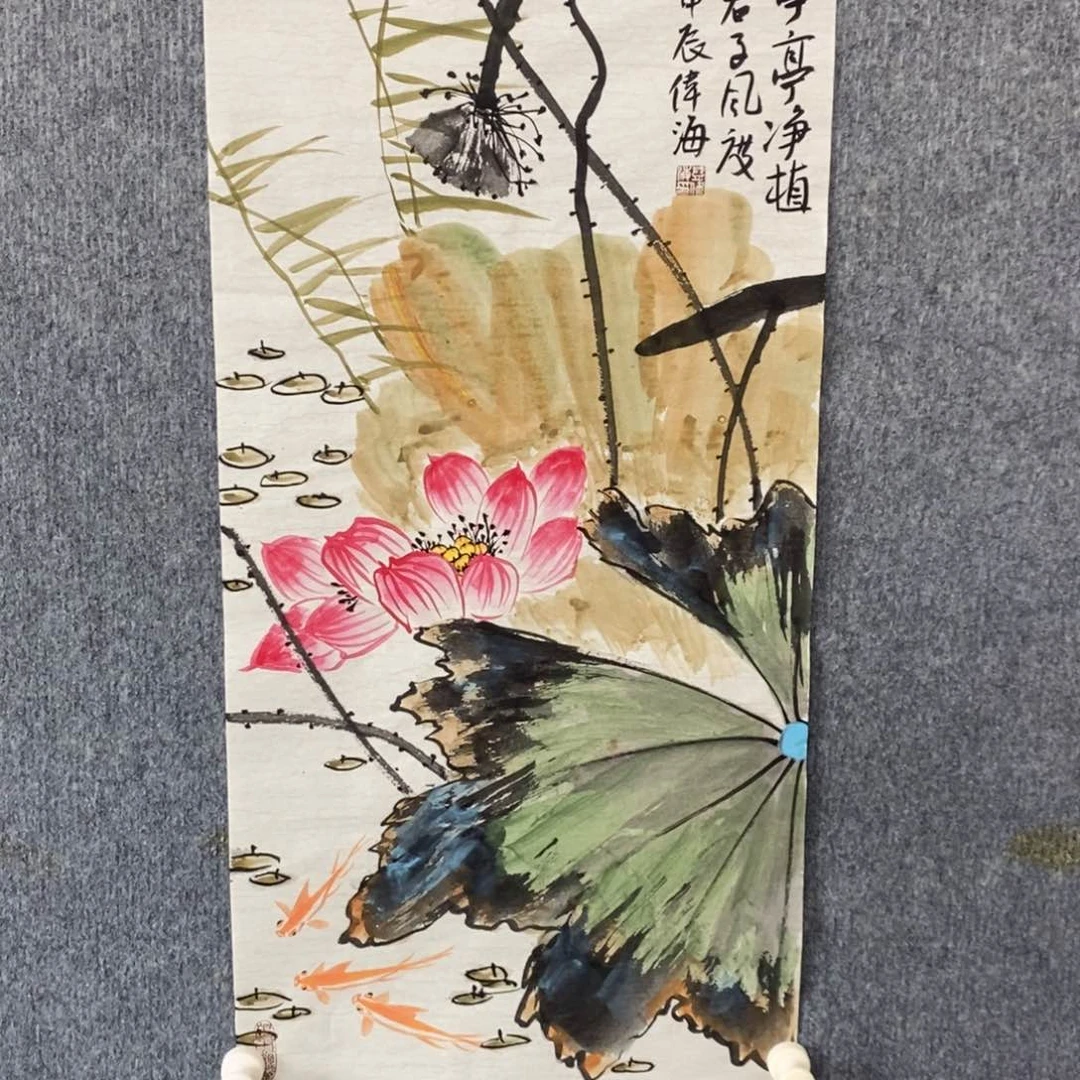 亭亭净植
君子风度
甲辰偉海